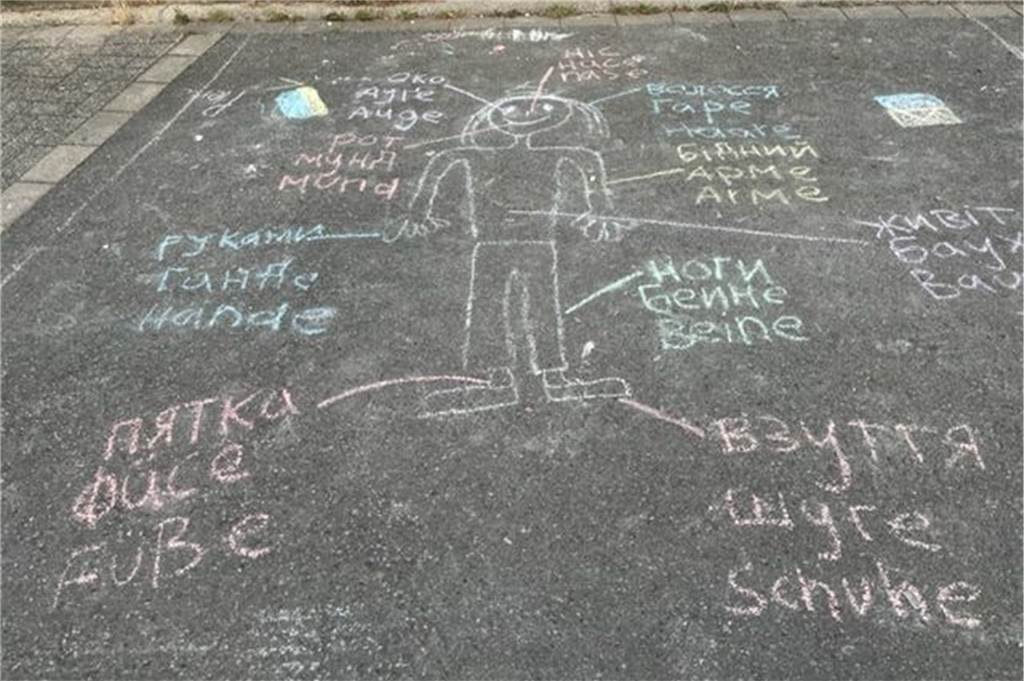 ніс
нусе
nase
око
ауге
Auge
волосся
гаре
Haare
рот
мунд
Mund
бідний
Арме
Arme
руками
Ганде
Hände
живіт
Баух
Bau
ноги
Бейне
Beine
пятка
фисе
Fuße
взуття
шуге
Schuhe